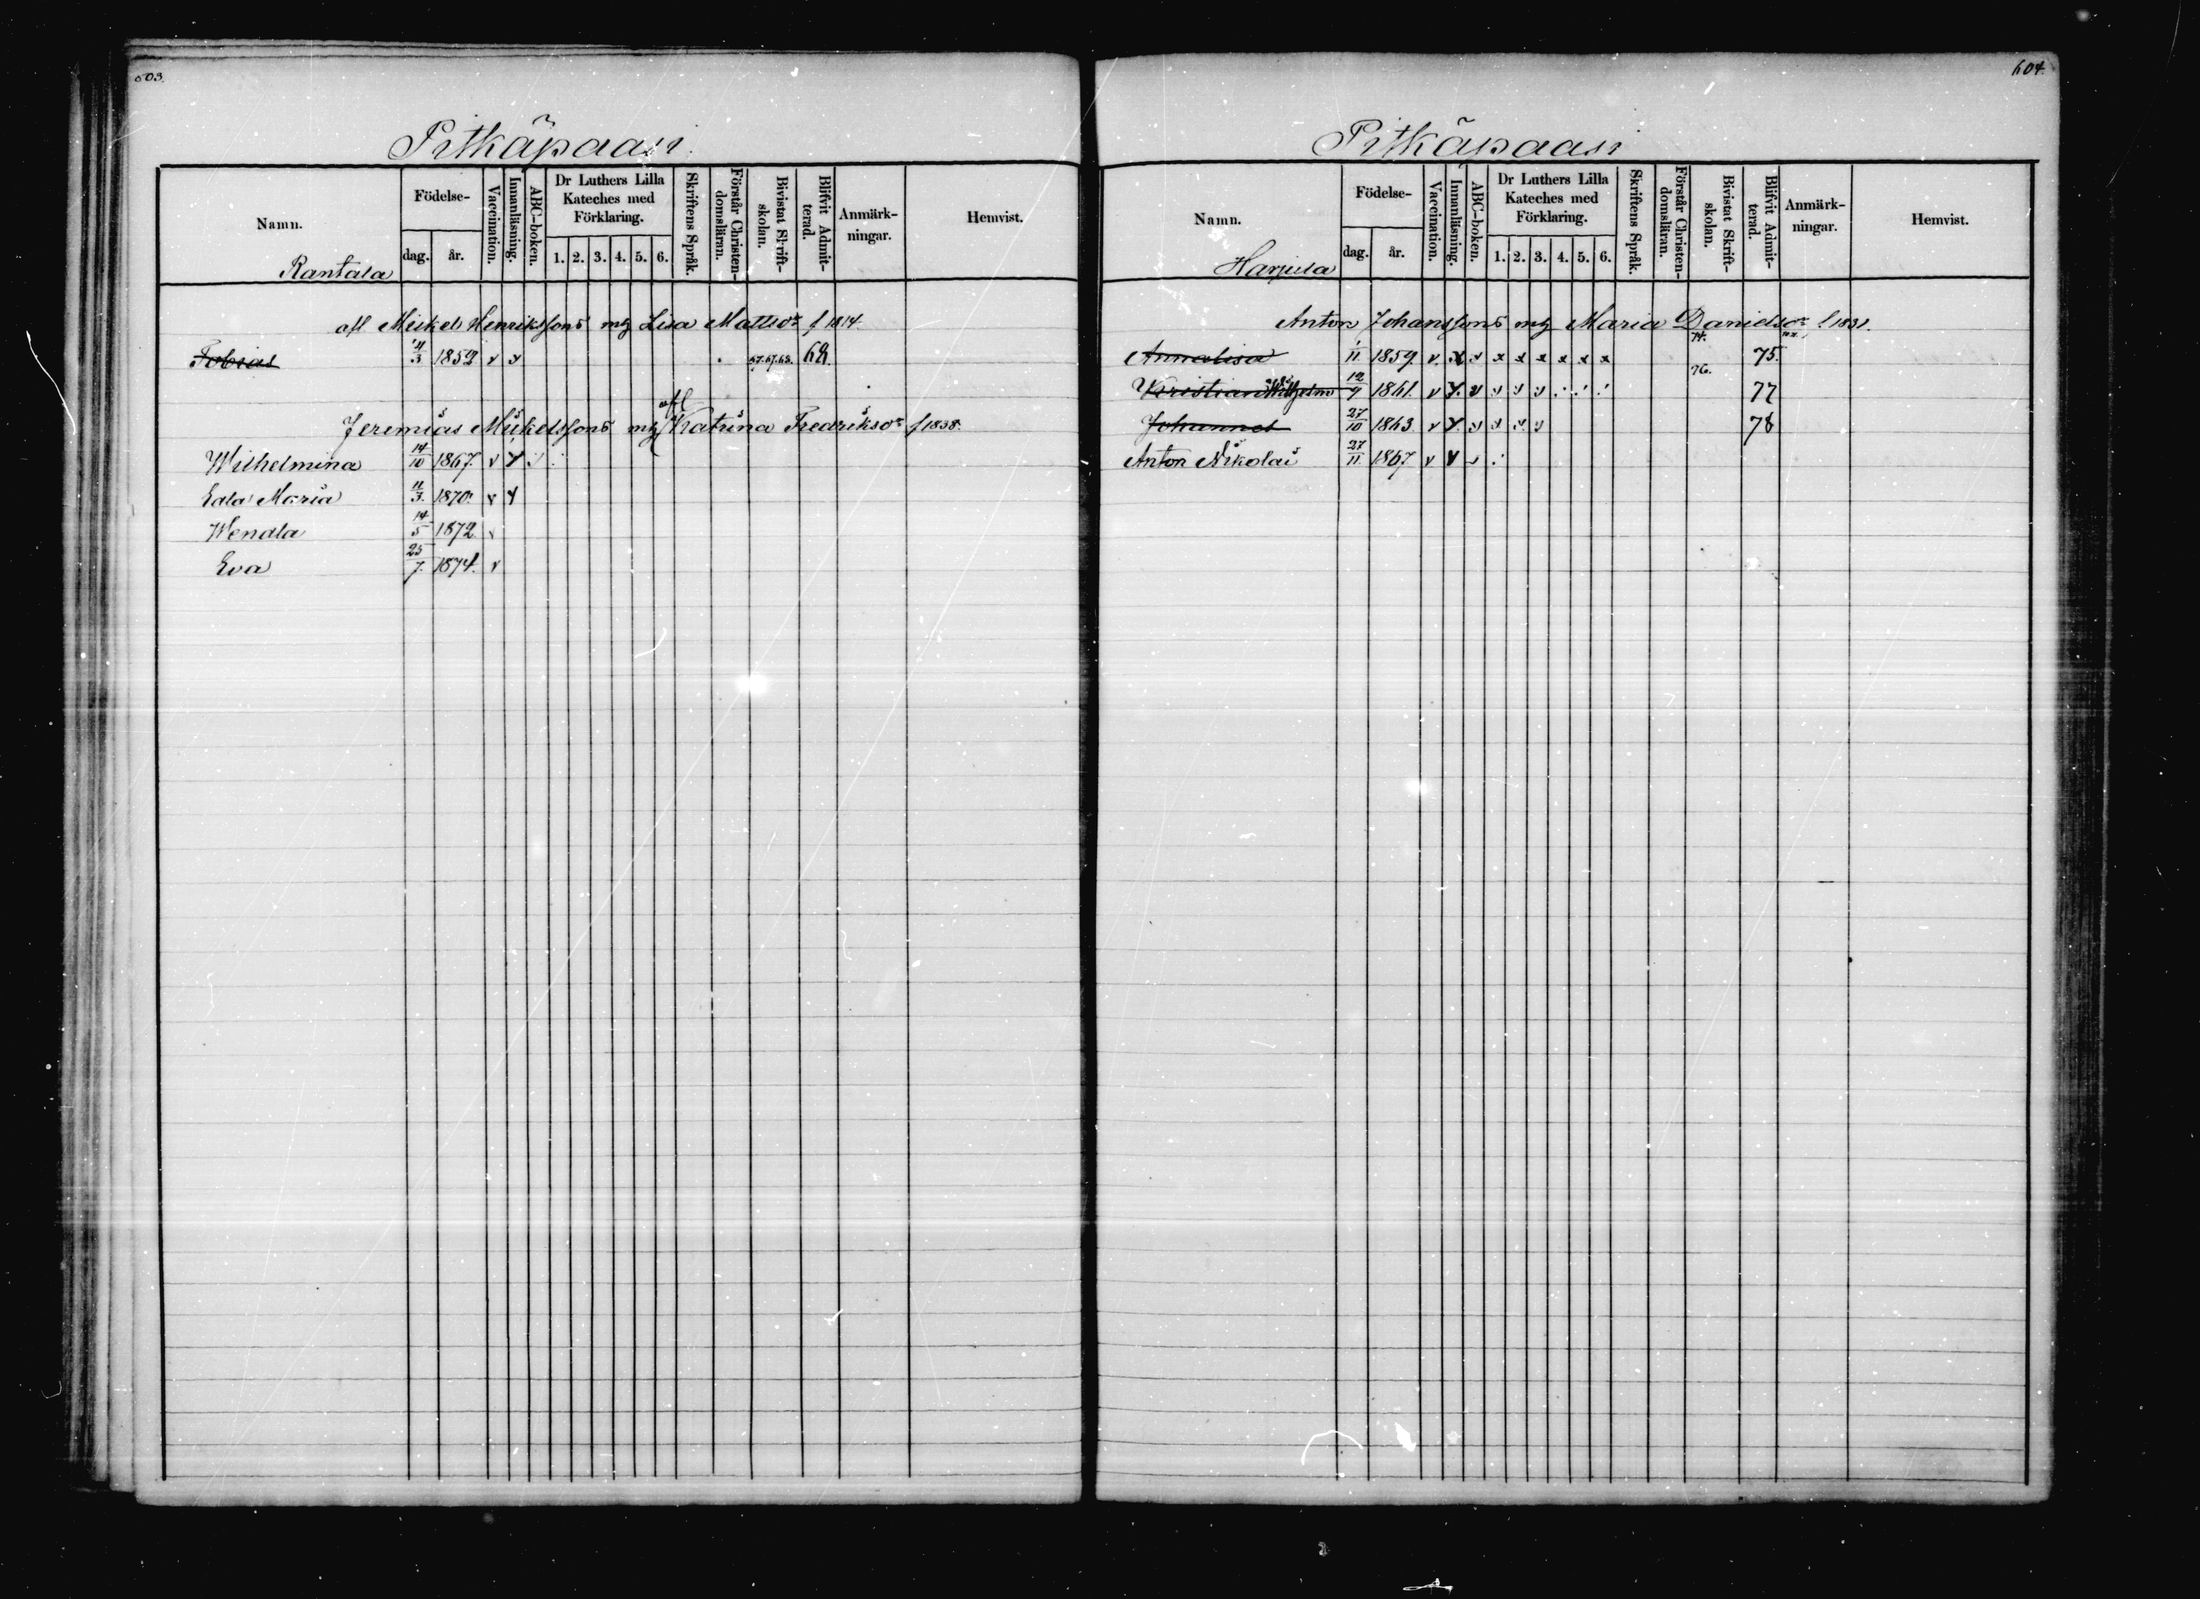 603.
Pitkäpaasi.
Namn.
Födelse-
dag.
år.
Vaccination.
Innanläsning.
ABC-boken.
Dr Luthers Lilla Kateches med Förklaring.
1. 2. 3. 4. 5. 6.
Skriftens Språk.
Förstår Christendomsläran.
Bivistat Skriftskolan.
Blifvit Admitterad.
Anmärkningar.
Hemvist.
Rantala
afl Mickel Henrikssons mtz Lisa Mattsdr f 1814.
Tobias 4/3 1852 v v 67.67.68. 68.
afl
Jeremias Mickelssons mtz Katrina Fredriksdr f 1838.
Wilhelmina 14/10 1867. v v
Eda Maria 11/3. 1870. v v
Wendla 14/5 1872. v
Eva 25/7. 1874. v
604.
Pitkäpaasi
Namn.
Födelse-
dag.
år.
Vaccination.
Innanläsning.
ABC-boken.
Dr Luthers Lilla Kateches med Förklaring.
1. 2. 3. 4. 5. 6.
Skriftens Språk.
Förstår Christendomsläran.
Bivistat Skriftskolan.
Blifvit Admitterad.
Anmärkningar.
Hemvist.
Harjula
Anton Johanssons mtz Maria Danielsdr f 1831.
Annalisa 1/11. 1859. v. x v x x x x x x 74. 75.
Kristian Wilhelm 12/9 1861. v v. v v v v 76. 77
Johannes 27/10 1863. v v. v v v v 78
Anton Nikolai 27/11. 1867 v v v